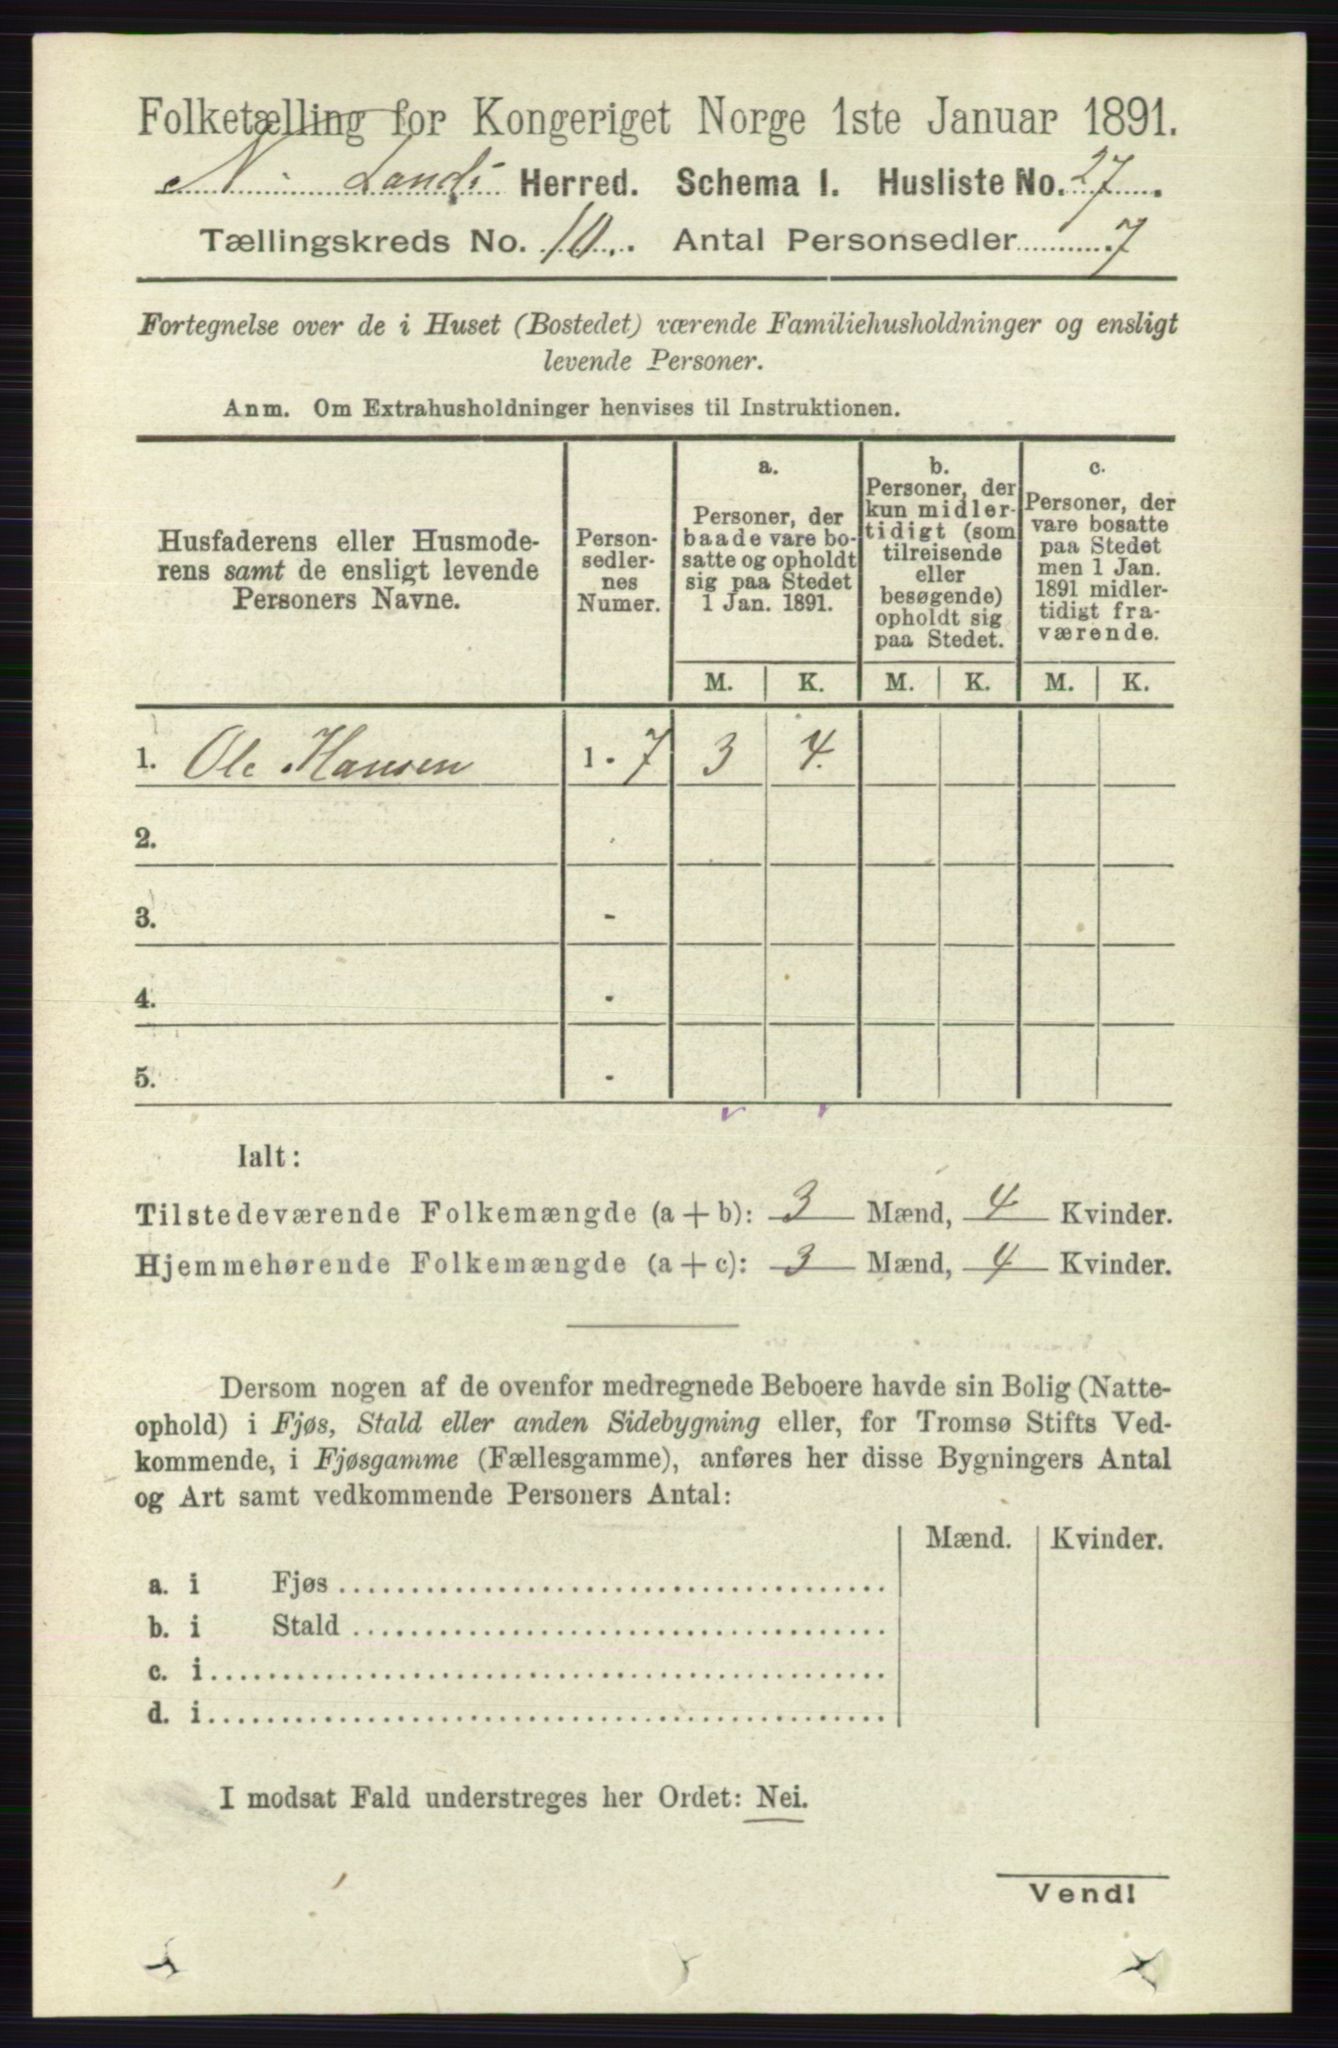 Folketælling for Kongeriget Norge 1ste Januar 1891.
N. Lands Herred. Schema I. Husliste No. 27.
Tællingskreds No. 10. Antal Personsedler 7
Fortegnelse over de i Huset (Bostedet) værende Familiehusholdninger og ensligt
levende Personer.
Anm. Om Extrahusholdninger henvises til Instruktionen.
Husfaderens eller Husmode-
rens samt de ensligt levende
Personers Navne.
Person-
sedler-
nes
Numer.
a.
Personer, der
baade vare bo-
satte og opholdt
sig paa Stedet
1 Jan. 1891.
b.
Personer, der
kun midler-
tidigt (som
tilreisende
eller
besøgende)
opholdt sig
paa Stedet.
c.
Personer, der
vare bosatte
paa Stedet
men 1 Jan.
1891 midler-
tidigt fra-
værende.
M. K. M. K. M. K.
1. Ole Hansen 1 - 7 3 4.
2.
3. -
4. -
5. -
Ialt:
Tilstedeværende Folkemængde (a + b): 3 Mænd, 4 Kvinder.
Hjemmehørende Folkemængde (a + c): 3 Mænd, 4 Kvinder.
Dersom nogen af de ovenfor medregnede Beboere havde sin Bolig (Natte-
ophold) i Fjøs, Stald eller anden Sidebygning eller, for Tromsø Stifts Ved-
kommende, i Fjøsgamme (Fællesgamme), anføres her disse Bygningers Antal
og Art samt vedkommende Personers Antal:
Mænd. Kvinder.
a. i Fjøs
b. i Stald
c. i
d. i
I modsat Fald understreges her Ordet: Nei.
Vend!